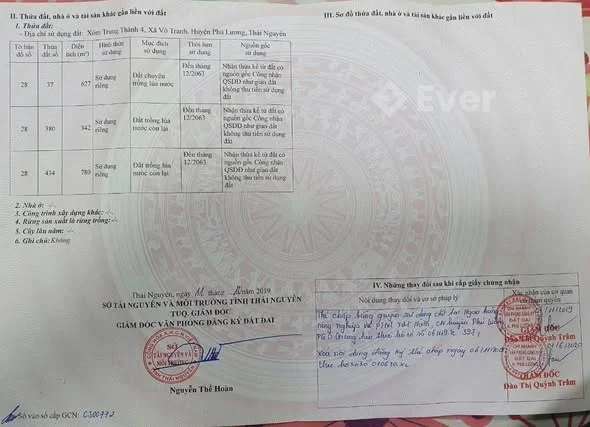 II. Thửa đất, nhà ở và tài sản khác gắn liền với đất
1. Thửa đất:
- Địa chỉ sử dụng đất: Xóm Trung Thành 4, Xã Vô Tranh, Huyện Phú Lương, Thái Nguyên
Tờ bản đồ số | Thửa đất số | Diện tích (m²) | Hình thức sử dụng | Mục đích sử dụng | Thời hạn sử dụng | Nguồn gốc sử dụng
28 | 37 | 627 | Sử dụng riêng | Đất chuyên trồng lúa nước | Đến tháng 12/2063 | Nhận thừa kế từ đất có nguồn gốc Công nhận QSDĐ như giao đất không thu tiền sử dụng đất
28 | 380 | 342 | Sử dụng riêng | Đất trồng lúa nước còn lại | Đến tháng 12/2063 | Nhận thừa kế từ đất có nguồn gốc Công nhận QSDĐ như giao đất không thu tiền sử dụng đất
28 | 434 | 780 | Sử dụng riêng | Đất trồng lúa nước còn lại | Đến tháng 12/2063 | Nhận thừa kế từ đất có nguồn gốc Công nhận QSDĐ như giao đất không thu tiền sử dụng đất
2. Nhà ở: -/-.
3. Công trình xây dựng khác: -/-.
4. Rừng sản xuất là rừng trồng: -/-.
5. Cây lâu năm: -/-.
6. Ghi chú: Không.
Thái Nguyên, ngày tháng năm 2019
SỞ TÀI NGUYÊN VÀ MÔI TRƯỜNG TỈNH THÁI NGUYÊN
TUQ. GIÁM ĐỐC
GIÁM ĐỐC VĂN PHÒNG ĐĂNG KÝ ĐẤT ĐAI
SỞ
TÀI NGUYÊN VÀ
MÔI TRƯỜNG
Nguyễn Thế Hoàn
Số vào sổ cấp GCN: CS00772
III. Sơ đồ thửa đất, nhà ở và tài sản khác gắn liền với đất
Ever
IV. Những thay đổi sau khi cấp giấy chứng nhận
Nội dung thay đổi và cơ sở pháp lý
Xác nhận của cơ quan có thẩm quyền
Thế chấp bằng quyền sử dụng đất tại Ngân hàng
nông nghiệp và PTNT Việt Nam, CN huyện Phú Lương
theo hồ sơ số
Xóa nội dung đăng ký thế chấp ngày
theo hồ sơ số
CHI NHÁNH
ĐẤT ĐAI
H. PHÚ LƯƠNG
GIÁM ĐỐC
Đào Thị Quỳnh Trâm
CHI NHÁNH
ĐẤT ĐAI
H. PHÚ LƯƠNG
GIÁM ĐỐC
Đào Thị Quỳnh Trâm